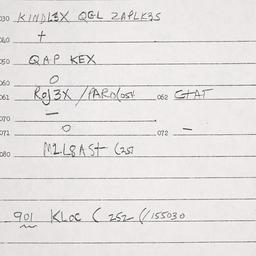 030 KINDLEX QGL ZAPLK3S
040 +
050 QAP KEX
060 O
061 RoJ3X / PARD(054 062 CTAT
070 —
071 O 072 —
080 M2L8ASt (257
901 KLOC ( 252 (/155030